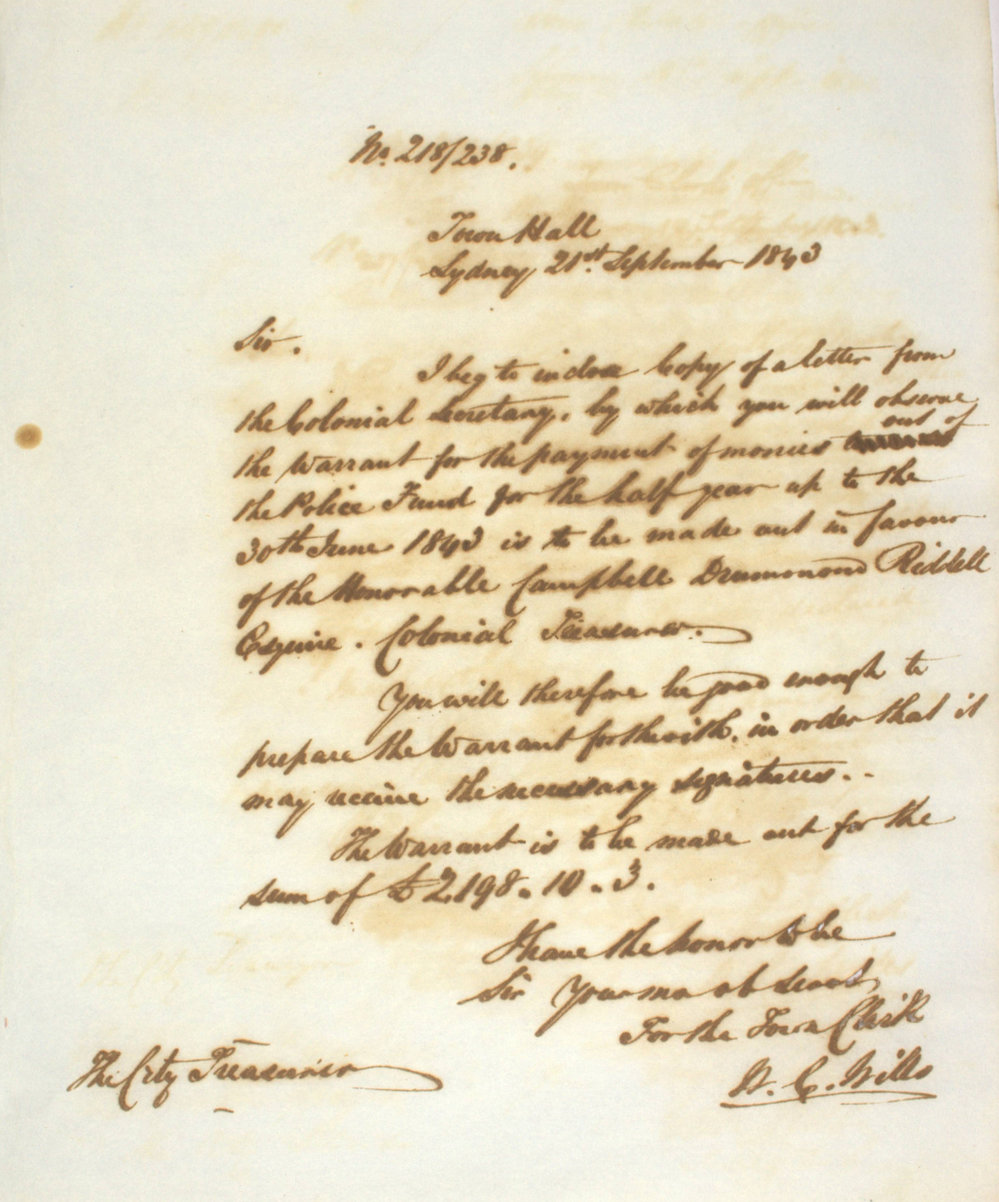 No. 218/238.
Town Hall
Sydney 21st September 1843
Sir.
I beg to inclose Copy of a letter from
the Colonial Secretary, by which you will observe
the Warrant for the payment of monies out of
the Police Fund for the half year up to the
30th June 1843 is to be made out in favour
of the Honorable Campbell Drummond Riddell
Esquire. Colonial Treasurer.
You will therefore be good enough to
prepare the Warrant forthwith, in order that it
may receive the necessary signatures..
The Warrant is to be made out for the
sum of £2,198.10.3.
I have the honor to be
Sir Your mo ob Servt
For the Town Clerk
W. C. Wills
The City Treasurer